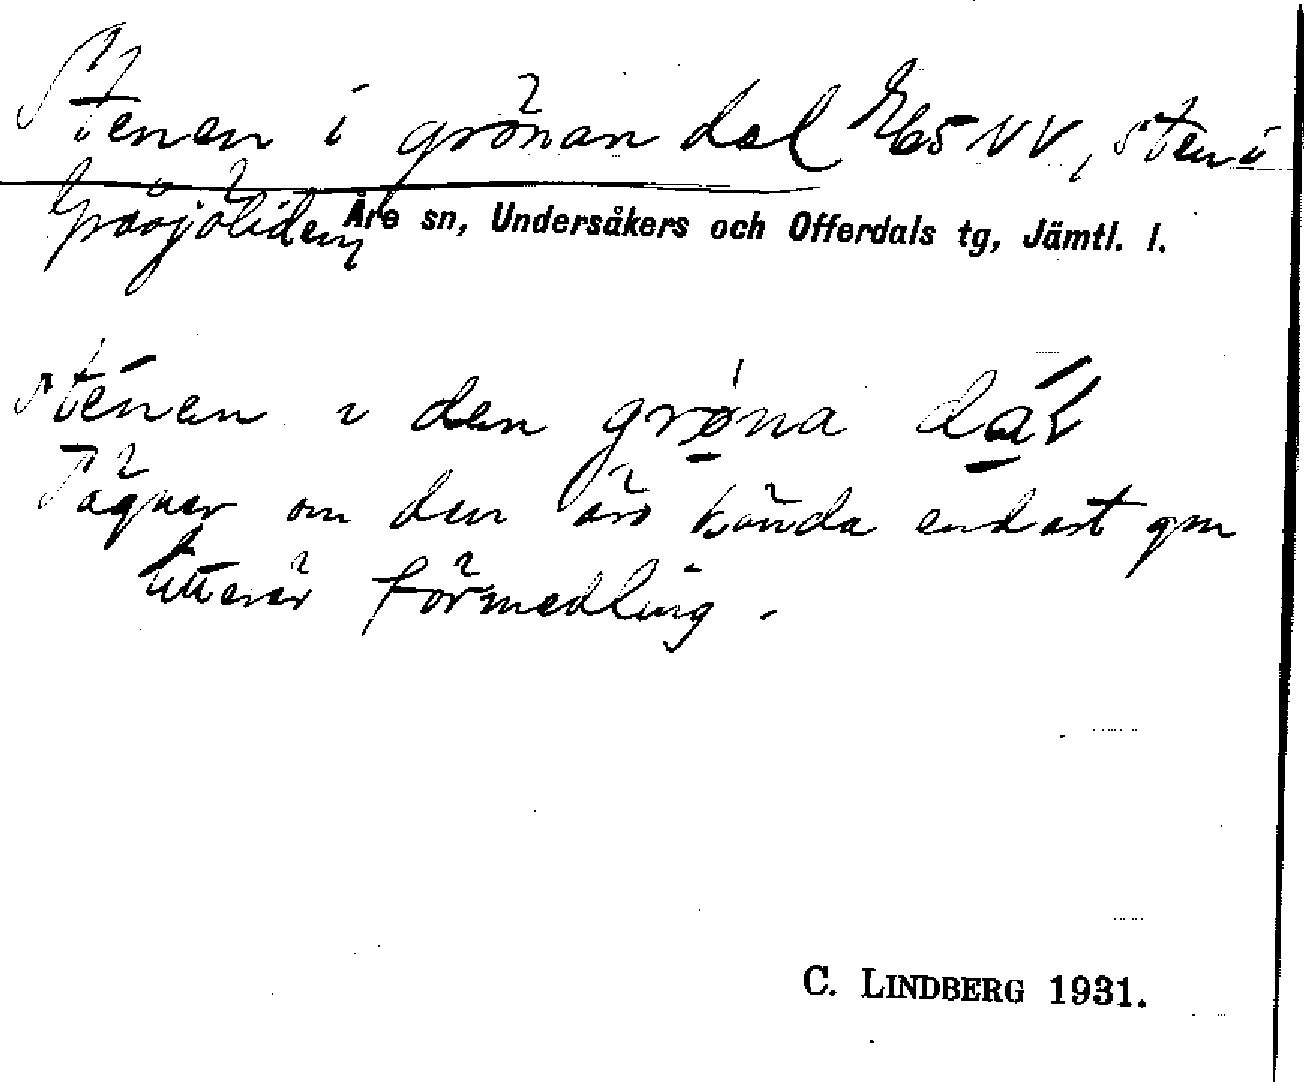 Stenen i grönan dal E65 NV, sten i
Åre sn, Undersåkers och Offerdals tg, Jämtl. l.
sténen i den grø̀na dáʟ
Sägner om den äro kända endast gm
litterär förmedling.
C. LINDBERG 1931.